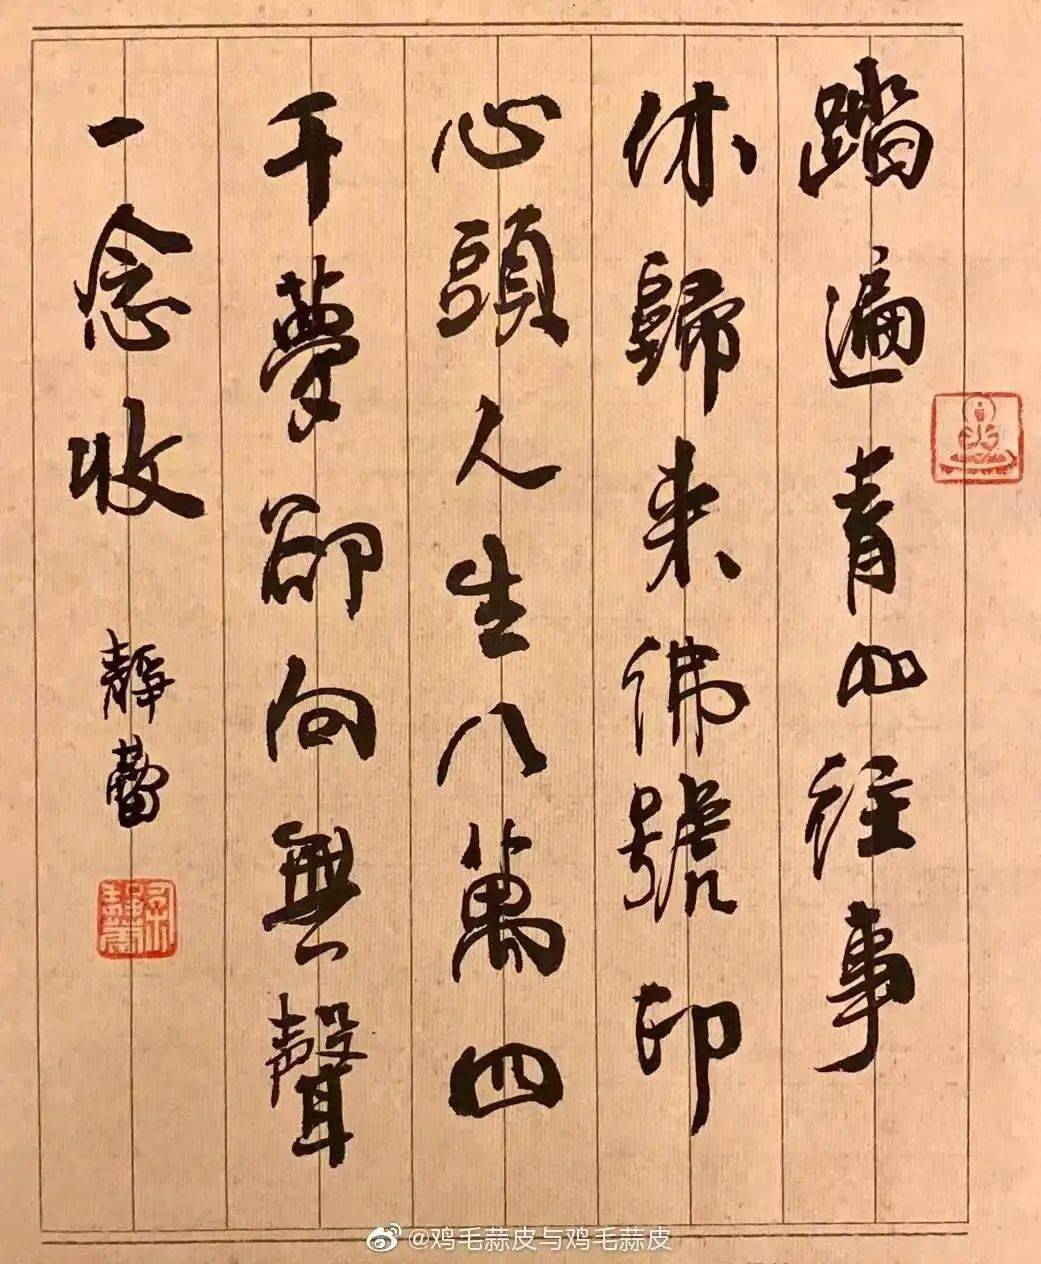 踏遍青山往事
休歸来佛號印
心頭人生八萬四
千夢卻向無聲
一念收
靜蕾
@鸡毛蒜皮与鸡毛蒜皮